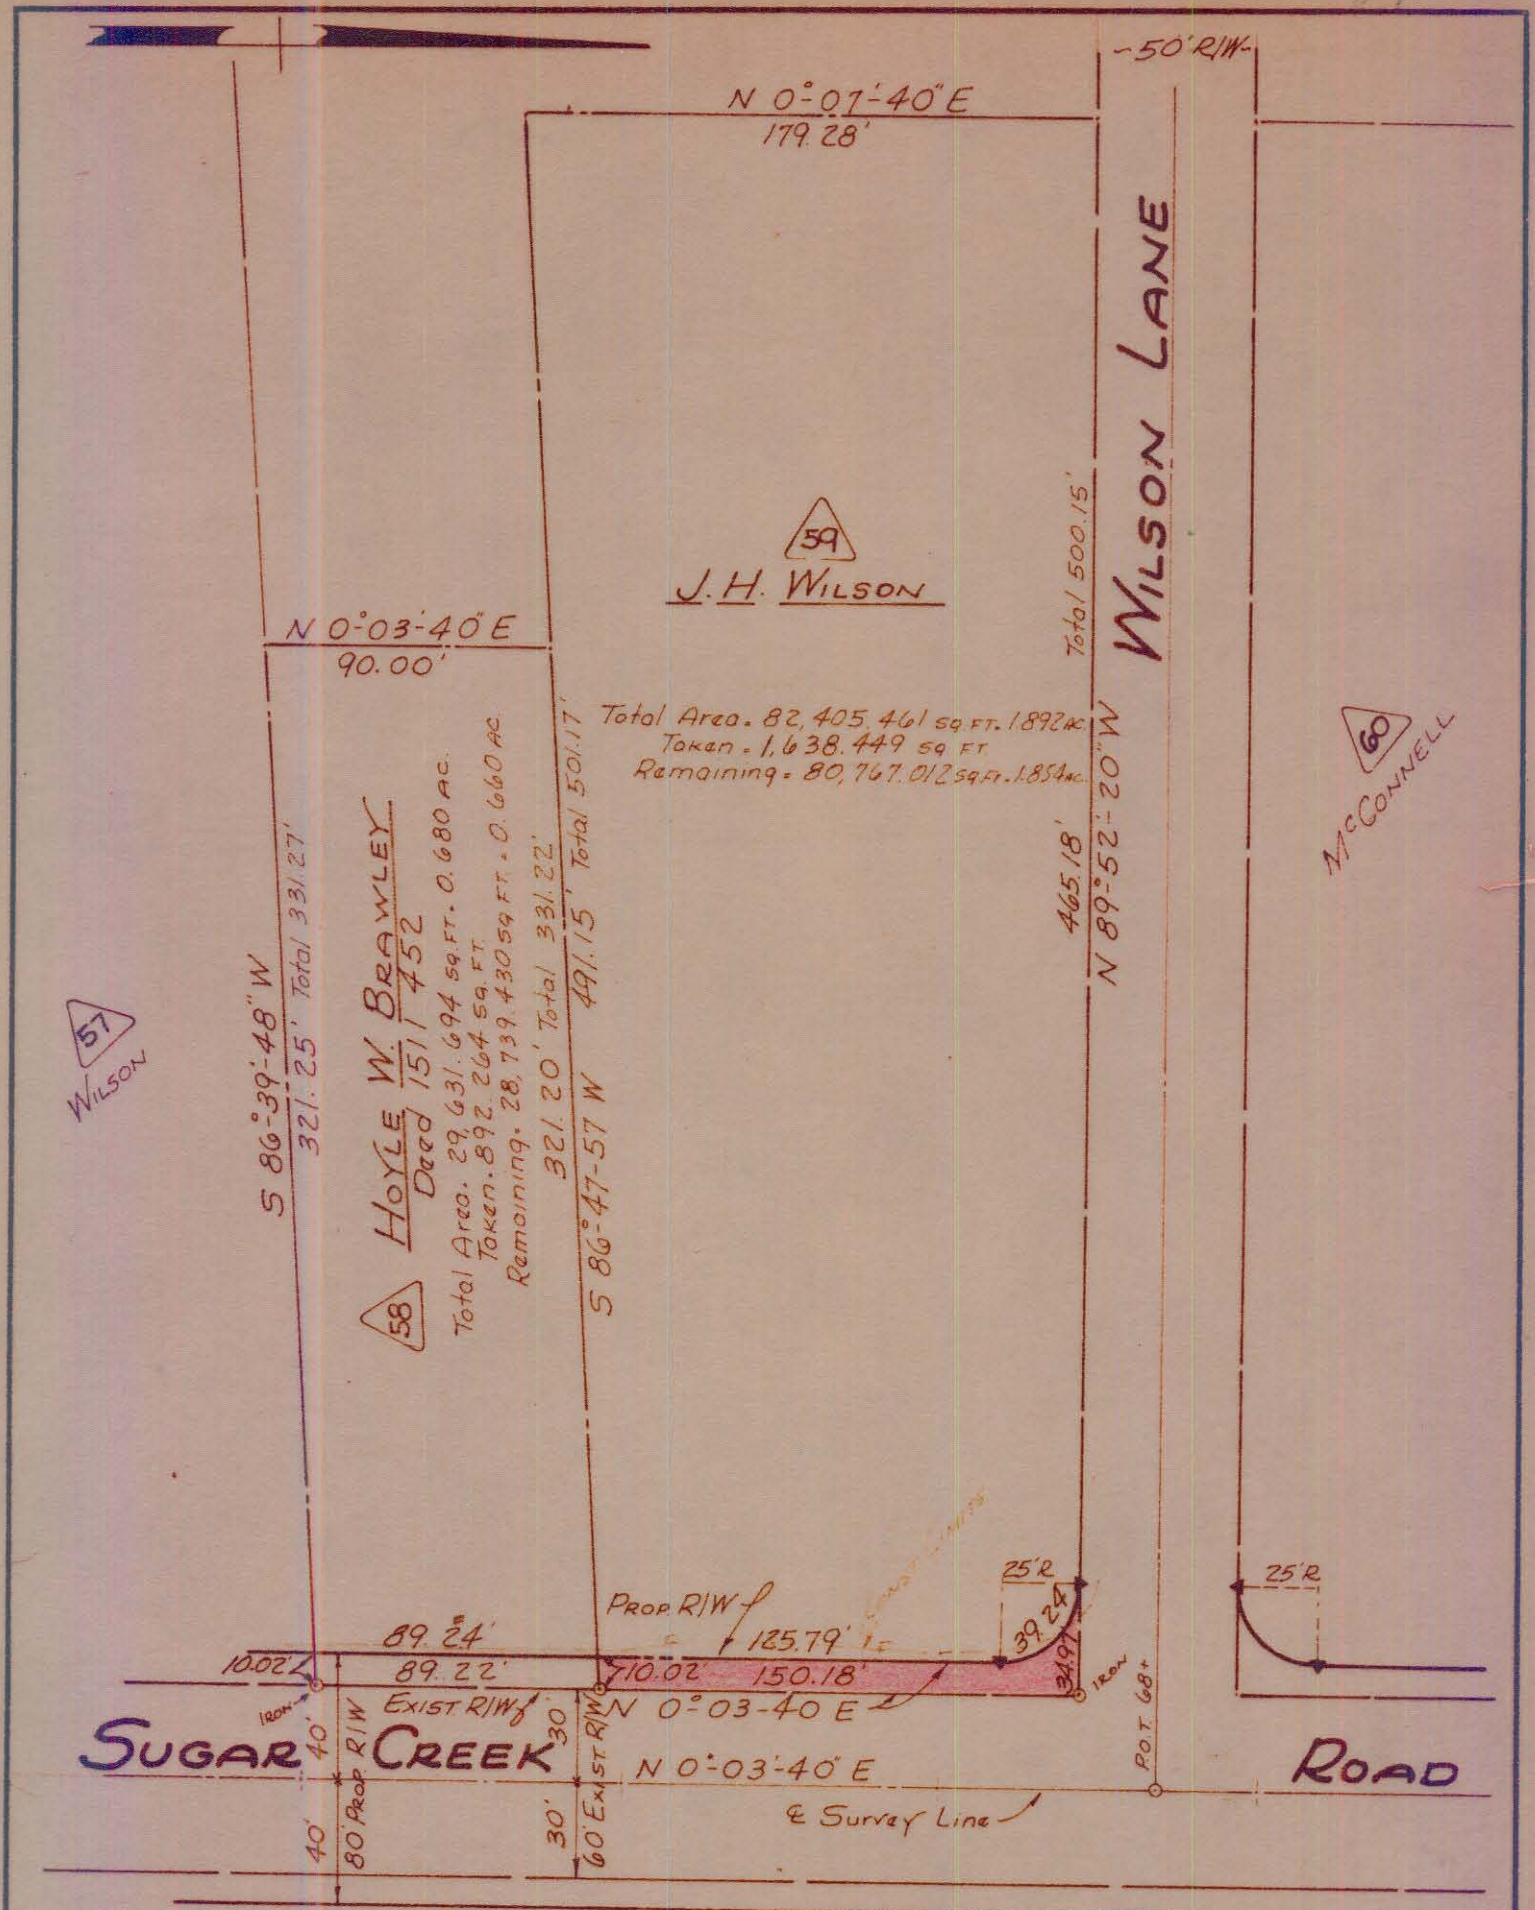 -50' R/W-
N 0°-07'-40" E
179.28'
WILSON LANE
59
J.H. WILSON
Total 500.15'
N 0°-03'-40" E
90.00'
Total Area = 82,405.461 SQ.FT. 1.892 AC.
Taken = 1,638.449 SQ FT
Remaining = 80,767.012 SQ.FT. 1.854 AC.
60
McCONNELL
465.18'
N 89°-52'-20" W
57
WILSON
S 86°-39'-48" W
321.25' Total 331.27'
58
HOYLE W. BRAWLEY
Deed 1511 / 452
Total Area = 29,631.694 SQ.FT. = 0.680 AC.
Taken = 892.264 SQ.FT.
Remaining = 28,739.430 SQ FT. = 0.660 AC
321.20' Total 331.22'
S 86°-47-57 W 491.15' Total 501.17'
PROP. R/W
25'R
25'R
89.24'
125.79'
39.24
10.02'
89.22'
10.02'
150.18'
34.97
IRON
IRON
EXIST R/W
N 0°-03-40 E
SUGAR CREEK ROAD
40'
40'
80' PROP. R/W
30'
30'
60' EXIST R/W
N 0°-03'-40" E
P.O.T. 68+
℄ Survey Line